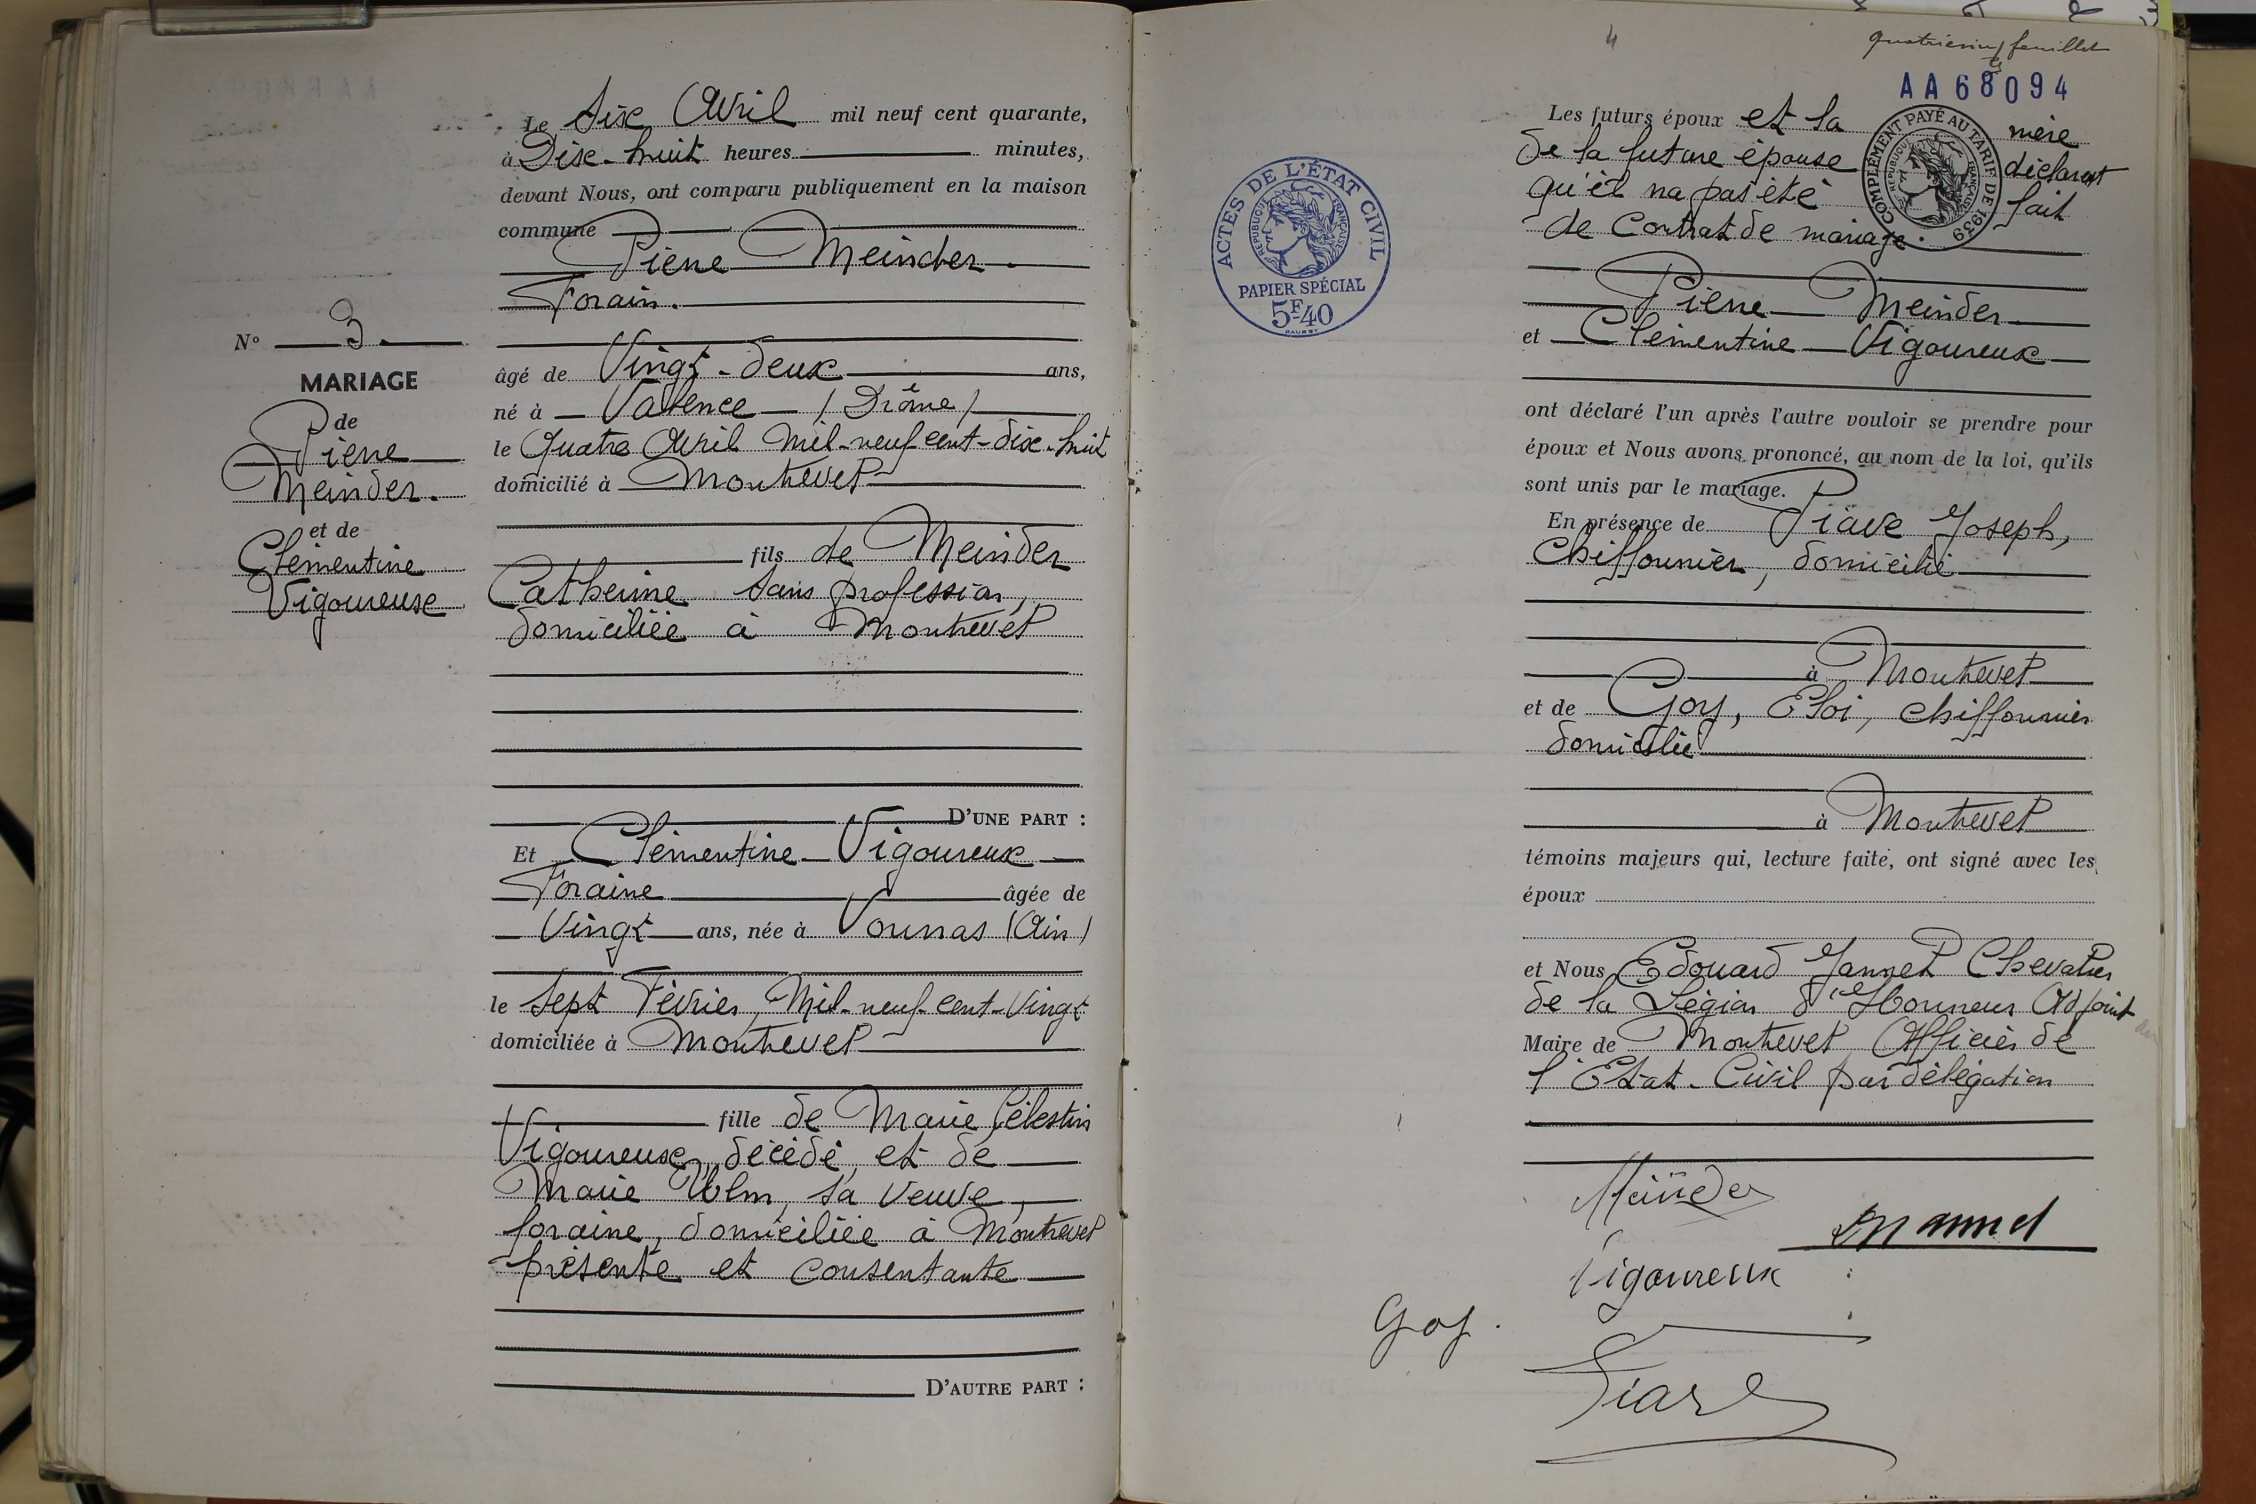 N° 3.
MARIAGE
de
Pierre
Meinder.
et de
Clémentine
Vigoureux
Le Six Avril mil neuf cent quarante,
à Dix-huit heures minutes,
devant Nous, ont comparu publiquement en la maison
commune
Pierre Meinder.
Forain.
âgé de Vingt-deux ans,
né à Valence (Drôme)
le Quatre Avril Mil-neuf cent-dix-huit
domicilié à Montrevel
fils de Meinder
Catherine sans profession,
domiciliée à Montrevel
D'UNE PART :
Et Clémentine Vigoureux
Foraine âgée de
Vingt ans, née à Vonnas (Ain)
le Sept Février, Mil-neuf-cent-Vingt
domiciliée à Montrevel
fille de Marie Célestin
Vigoureux, décédé, et de
Marie Ulm, sa veuve,
foraine, domiciliée à Montrevel
présente et consentante
D'AUTRE PART :
4
quatrième feuillet
AA68094
ACTES DE L'ÉTAT CIVIL
RÉPUBLIQUE FRANÇAISE
PAPIER SPÉCIAL
5F40
COMPLÉMENT PAYÉ AU TARIF DE 1939
RÉPUBLIQUE FRANÇAISE
Les futurs époux et la mère
de la future épouse déclarent
qu'il n'a pas été fait
de contrat de mariage.
Pierre Meinder
et Clémentine Vigoureux
ont déclaré l'un après l'autre vouloir se prendre pour
époux et Nous avons prononcé, au nom de la loi, qu'ils
sont unis par le mariage.
En présence de Piave Joseph,
Chiffonnier, domicilié
à Montrevel
et de Goy, Eloi, chiffonnier
domicilié
à Montrevel
témoins majeurs qui, lecture faite, ont signé avec les
époux
et Nous Edouard Jannet Chevalier
de la Légion d'Honneur Adjoint
Maire de Montrevel Officier de
l'Etat-Civil par délégation
Meinder
Vigoureux
Goy.
Piave